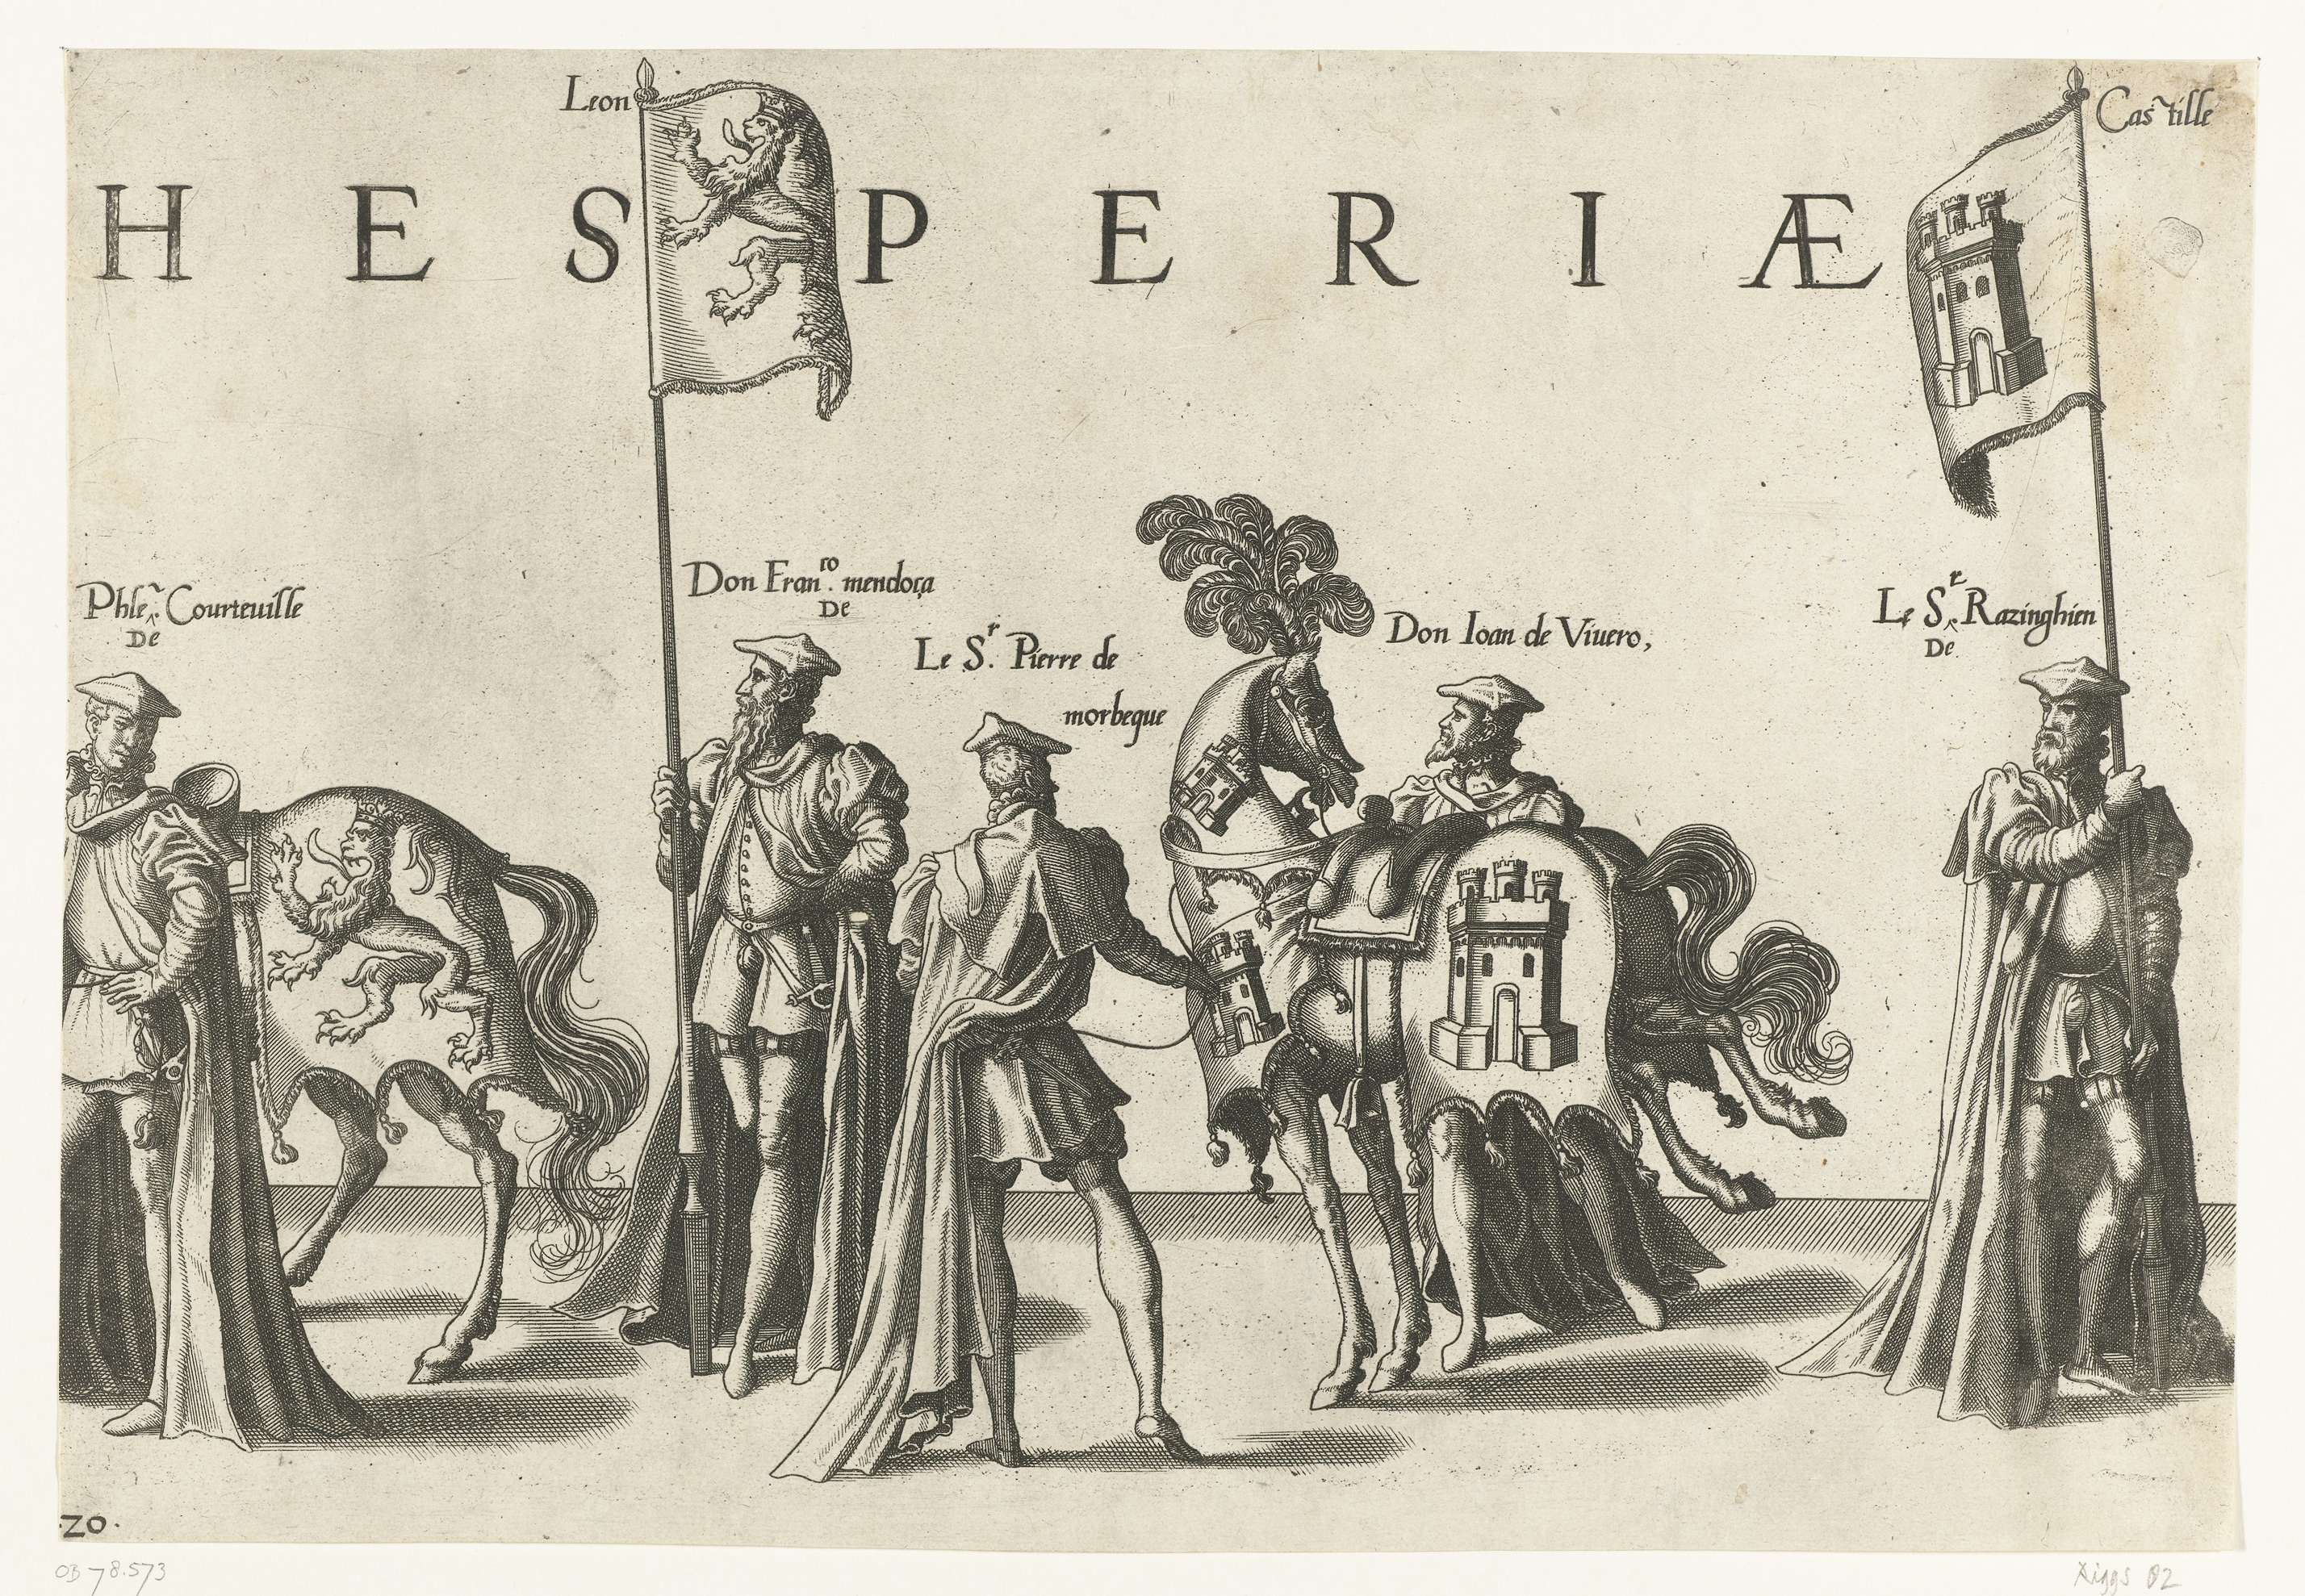 Leon
Castille
H E S P E R I Æ
Phle~. Courteuille
De
Don Fran.ro mendoça
De
Le Sr. Pierre de
morbeque
Don Ioan de Viuero,
Le Sr. Razinghien
De
.20.
OB 78.573
Riggs 82